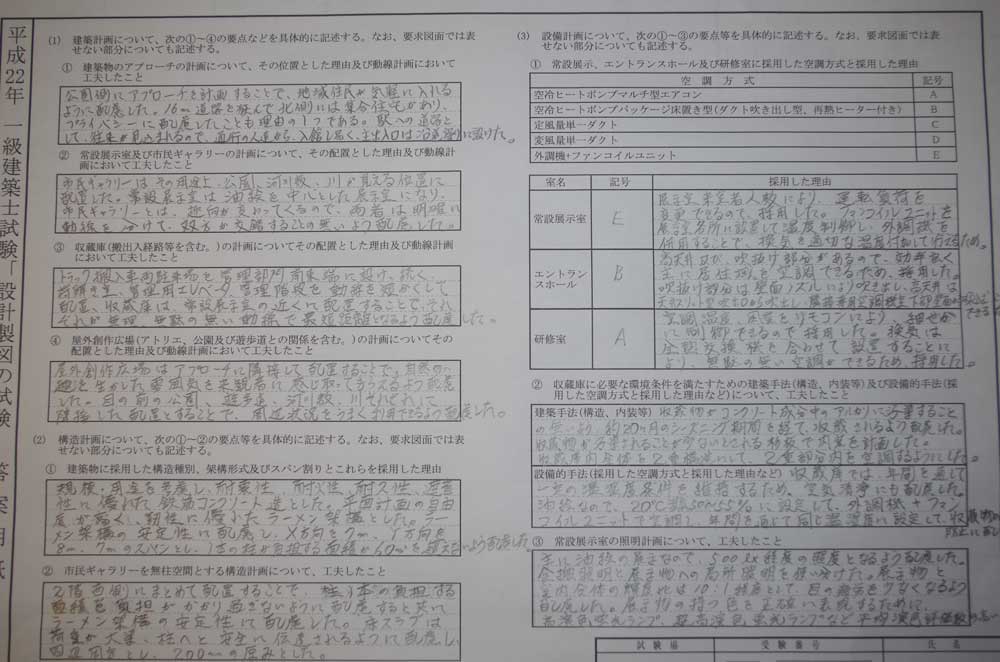 平成22年 一級建築士試験「設計製図の試験
答案用紙
(1) 建築計画について、次の①～④の要点などを具体的に記述する。なお、要求図面では表
せない部分についても記述する。
① 建築物のアプローチの計画について、その位置とした理由及び動線計画において
工夫したこと
公園側にアプローチを計画することで、地域住民が気軽に入れる
ように配慮した。16m道路を挟んで北側には集合住宅があり、
プライバシーに配慮したことも理由の1つである。駅への道路と
して、往来が見込まれるので、通行の人達から、入館し易く、主出入口は
② 常設展示室及び市民ギャラリーの計画について、その配置とした理由及び動線計
画において工夫したこと
市民ギャラリーはその用途上、公園、河川敷、川が見える位置に
配置した。常設展示室は油絵を中心とした展示室になり、
市民ギャラリーとは、趣向が変わってくるので、両者は明確に
動線を分けて、双方が交錯することの無いよう配慮した。
③ 収蔵庫(搬出入経路等を含む。)の計画についてその配置とした理由及び動線計画
において工夫したこと
トラック搬入車両駐車場を管理部門南東端に設け、続く、
荷解き室、管理用エレベータ、管理階段を動線を短かくして
配置、収蔵庫は、常設展示室の近くに配置することで、それ
ぞれが無理、無駄の無い動線で最短距離となるよう配慮した。
④ 屋外創作広場(アトリエ、公園及び遊歩道との関係を含む。)の計画についてその
配置とした理由及び動線計画において工夫したこと
屋外創作広場はアプローチに隣接して配置することで、自然の
趣を生かした雰囲気を来館者に感じ取ってもらえるよう配慮
した。目の前の公園、遊歩道、河川敷、川それぞれに
隣接した配置とすることで、周辺状況をうまく利用できるよう配慮した。
(2) 構造計画について、次の①～②の要点等を具体的に記述する。なお、要求図面では表
せない部分についても記述する。
① 建築物に採用した構造種別、架構形式及びスパン割りとこれらを採用した理由
規模・用途を考慮し、耐震性、耐火性、耐久性、遮音
性に優れた鉄筋コンクリート造とした。平面計画の自由
度が高く、靭性に優れたラーメン架構とした。ラー
メン架構の安定性に配慮し、X方向を7m、Y方向を
8m、7mのスパンとし、1本の柱が負担する面積が60㎡を超えないよう配慮した
② 市民ギャラリーを無柱空間とする構造計画について、工夫したこと
2階西側にまとめて配置することで、柱1本の負担する
面積を負担がかかり過ぎないように配慮すると共に
ラーメン架構の安定性に配慮した。床スラブは
荷重が大梁、柱へと安全に伝達されるように配慮し、
四辺固定とし、200mmの厚みとした。
(3) 設備計画について、次の①～③の要点等を具体的に記述する。なお、要求図面では表
せない部分についても記述する。
① 常設展示、エントランスホール及び研修室に採用した空調方式と採用した理由
空調方式 記号
空冷ヒートポンプマルチ型エアコン A
空冷ヒートポンプパッケージ床置き型(ダクト吹き出し型、再熱ヒーター付き) B
定風量単一ダクト C
変風量単一ダクト D
外調機+ファンコイルユニット E
室名 記号 採用した理由
常設展示室 E 展示室来室者人数により、運転負荷を
変更できるので、採用した。ファンコイルユニットを
展示室各所に設置して温度制御し、外調機を
併用することで、換気を適切な温度付加して行えるため。
エントランスホール B 高天井及び、吹抜け部分があるので、効率良く
主に居住域を空調できるため、採用した。
吹抜け部分は壁面ノズルにより吹き出し、高天井は
研修室 A 空調温度、風量をリモコンにより、細やか
に制御できるので採用した。換気は
全熱交換機を合わせて設置することに
より、無駄の無い空調ができるため、採用した。
② 収蔵庫に必要な環境条件を満たすための建築手法(構造、内装等)及び設備的手法(採
用した空調方式と採用した理由など)について、工夫したこと
建築手法(構造、内装等) 収蔵物がコンクリート成分中のアルカリに汚染すること
の無いよう、約20ヶ月のシーズニング期間を経て、収蔵されるよう配慮した。
収蔵物が汚染されることが少ないとされる杉板で内装を計画した。
収蔵庫内全体を2重構造にして、2重部分内を空調するようにした。
設備的手法(採用した空調方式と採用した理由など) 収蔵庫では年間を通して
一定の温湿度条件を維持するため、空気清浄にも配慮した。
油絵なので、20℃ 50~55%に設定して、外調機+ファン
コイルユニットで空調し、年間を通じて同じ温湿度に設定して、
③ 常設展示室の照明計画について、工夫したこと
主に油絵の展示なので、500lx程度の照度となるよう配慮した。
全般照明と展示物への局所照明を使い分けた。展示物と
室内全体の輝度比は10:1程度として、目の疲労を少なくなるよう
配慮した。展示物の持つ色を正確に表現するために、
高演色蛍光ランプなど平均演色評価数の高い
試験場 受験番号 氏名